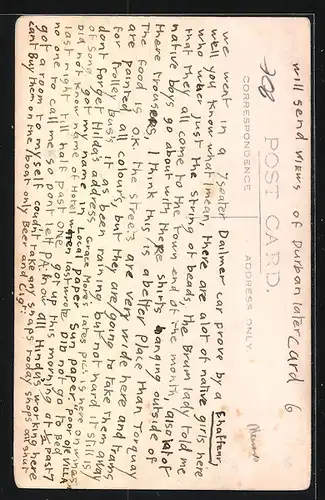 will send views of Durban later Card 6
POST CARD.
CORRESPONDENCE
ADDRESS ONLY
we went in a 7 seater Dailmer car drove by a Chaffeur,
well you know what I mean, there are alot of native girls here
who wher just the string of beads, the Drum lady told me
that they all come to the town end of the month, alsolotof
native boys go about with there shirts hanging outside of
there trousers, I think this is a better place than Torquay
The food is O.K. the streets are very wide here and Trams
are painted all colours, but they are going to take them away
for Trolley buss's it as been raining but not hard it still is
dont forget Hilda's address. Grace Moores lates pic is here on wings
of Song got in Local paper Sun paper, poor ole VILLA
Did not know name of Hotel when last wrote Did not go to Bed
last night till half past one got up this morning at ½ past 7
no one to call me so dont let know all Hindys working here
got a room to myself coudnt take any snaps today shops all shut
cant Buy them on the boat only Beer and Cigs: